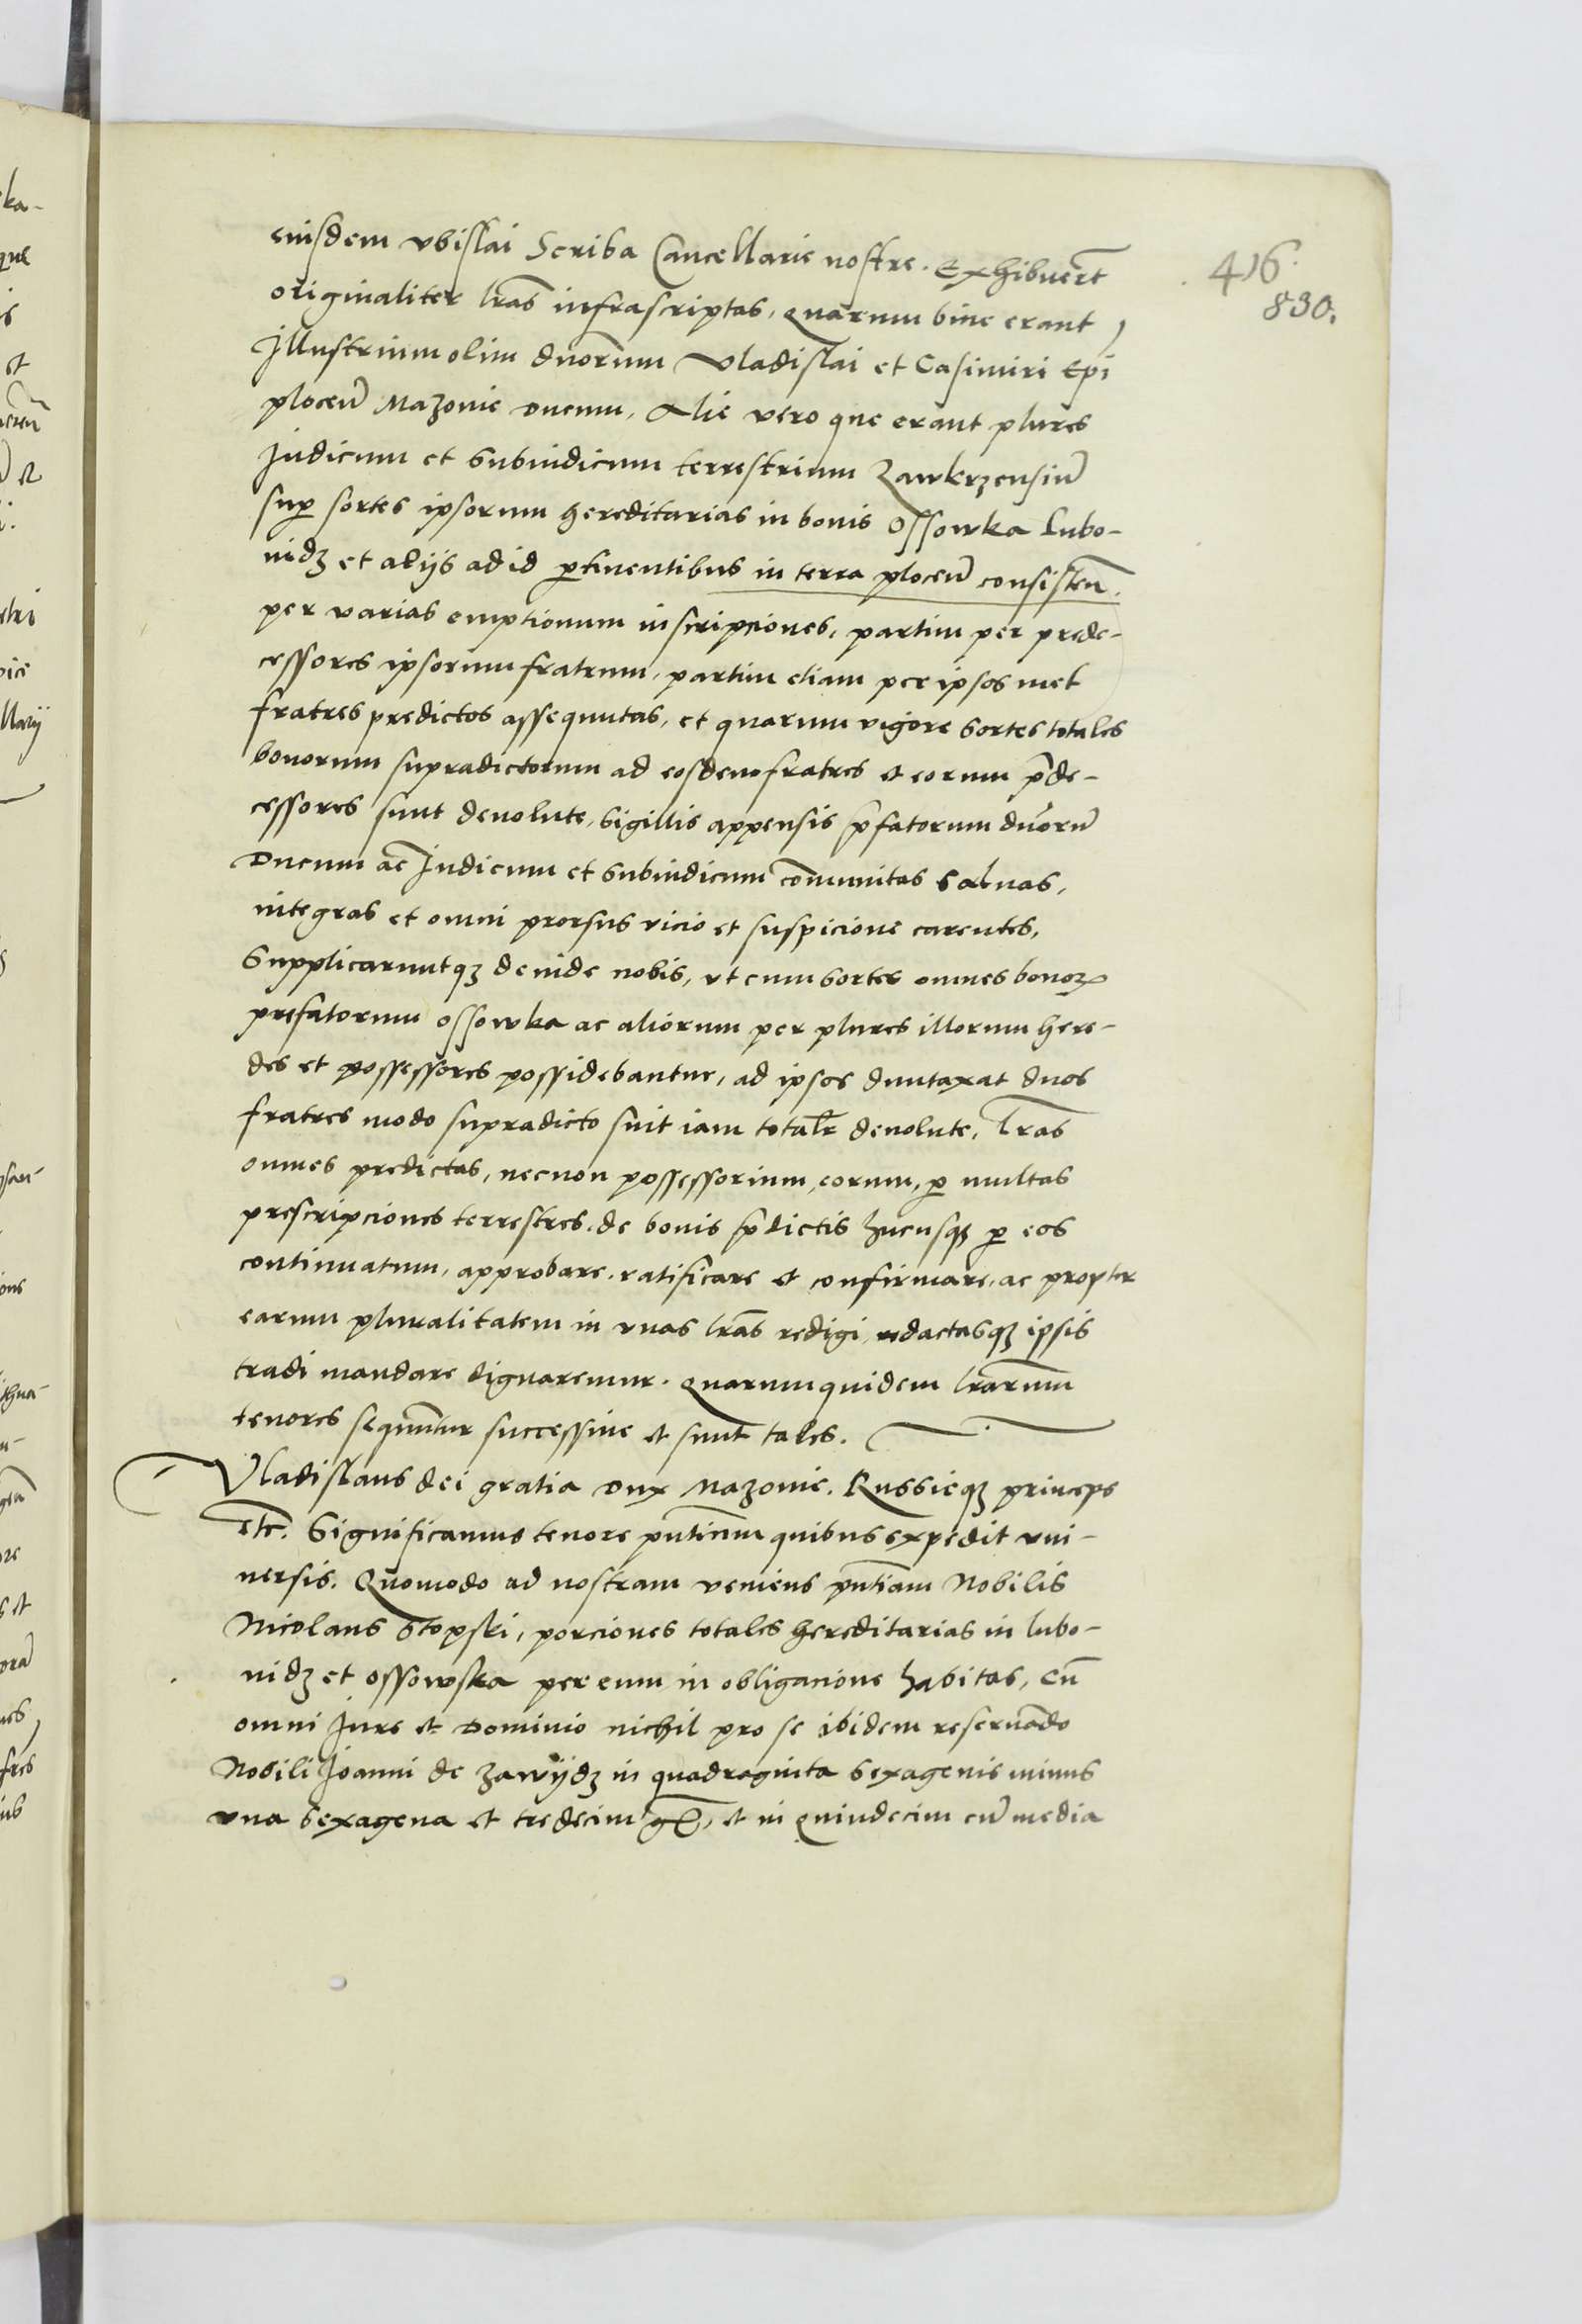 416.
830.
eiusdem vbislai Scriba Cancellarie nostre. Exhibuerūt
originaliter lrās infrascriptas, Quarum bine erant
Illustrium olim dnorum Vladislai et Casimiri Epi
plocen̄ Mazovie Ducum, Alie vero que erant plures
Judicum et Subiudicum terrestrium Zawkrzensiū
sup sortes ipsorum hereditarias in bonis Ossowka Lubo-
nidz et alijs ad id ptinentibus in terra plocen̄ consisten̄.
per varias emptionum inscripciones, partim per prede-
cessores ipsorum fratrum, partim etiam per ipsos met
fratres predictos assequutas, et quarum vigore sortes totales
bonorum supradictorum ad eosdem fratres et eorum p̄de-
cessores sunt deuolute, Sigillis appensis p̄fatorum dn̄orū
Ducum ac Judicum et Subiudicum com̄unitas saluas,
integras et omni prorsus vicio et suspicione carentes,
Supplicaruntqz deinde nobis, vt cum sortes omnes bonoꝝ
prefatorum Ossowka ac aliorum per plures illorum here-
des et possessores possidebantur, ad ipsos duntaxat duos
fratres modo supradicto sint iam totalr̄ deuolute, Lrās
omnes predictas, necnon possessorium eorum, p multas
prescripciones terrestres de bonis p̄dictis hucusqz p eos
continuatum, approbare, ratificare et confirmare, ac propter
earum pluralitatem in vnas lrās redigi, redactasqz ipsis
tradi mandare dignaremur. Quarum quidem lrārum
tenores sequūntur successiue et sunt tales.
Vladislaus dei gratia Dux Mazovie. Russieqz princeps
etc̄. Significamus tenore pn̄tium quibus expedit vni-
uersis. Quomodo ad nostram veniens pn̄tiam Nobilis
Nicolaus Stopski, porciones totales hereditarias in lubo-
nidz et ossowska per eum in obligacione habitas, cū
omni Jure et Dominio nichil pro se ibidem reseruādo
Nobili Joanni de Zawijdz in quadraginta sexagenis minus
vna sexagena et tredecim gr̄, et in Quindecim cū media